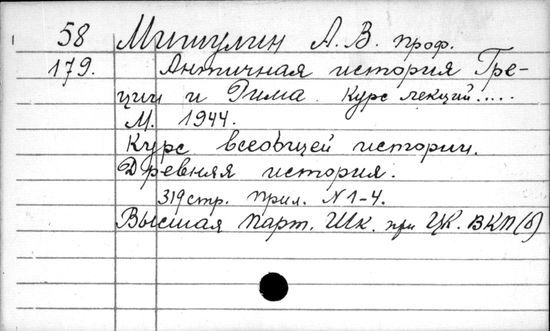 58 Мишулин А. В. проф.
179. Античная история Гре-
ции и Рима. Курс лекций.....
М. 1944.
Курс всеобщей истории.
Древняя история.
319 стр. прил. N 1-4.
Высшая парт. Шк. при ЦК. ВКП(б)